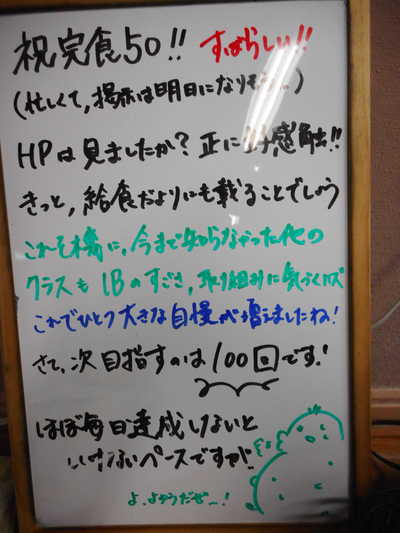 祝完食50!! すばらしい!!
(忙しくて,掲示は明日になりそう…)
HPは見ましたか?正に好感触!!
きっと,給食だよりにも載ることでしょう
これを機に,今まで知らなかった他の
クラスも1Bのすごさ,取り組みに気づくはず
これでひとつ大きな自慢が増えましたね!
さて,次目指すのは100回です!
ほぼ毎日達成しないと
いけないペースですが
よ,ようだぜ〜!